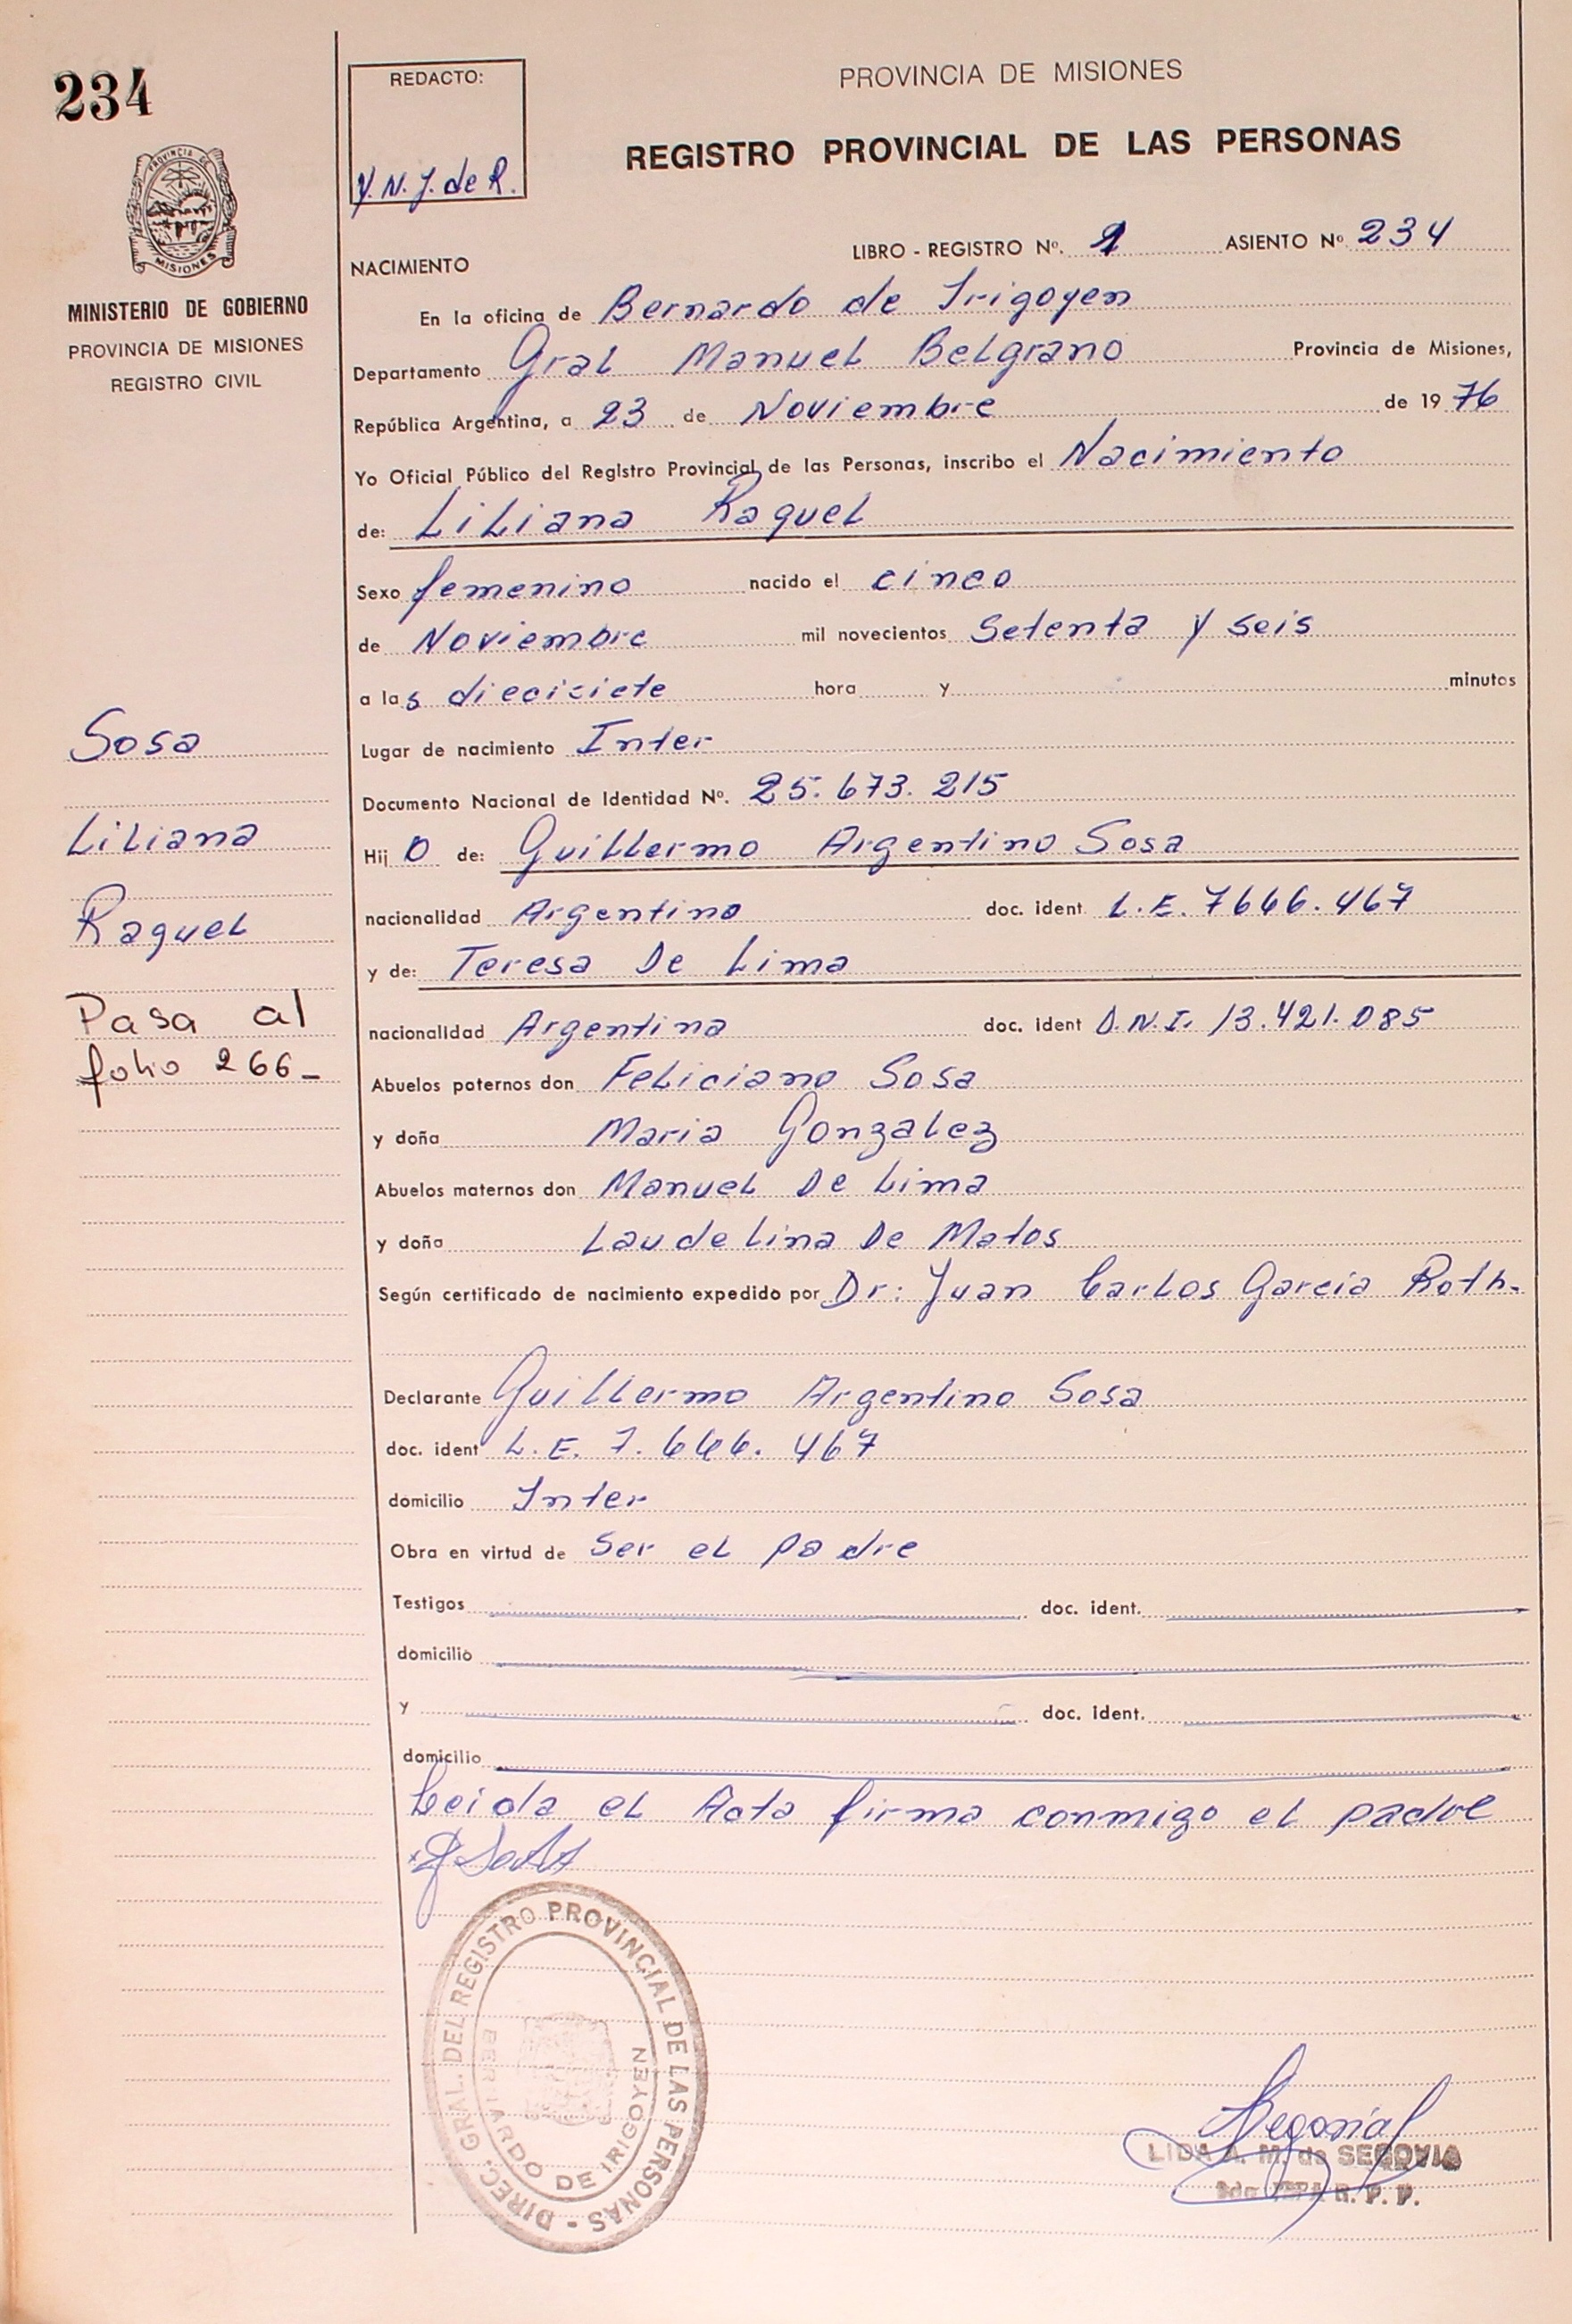 234
REDACTO:
Y. N. J. de R.
PROVINCIA DE MISIONES
REGISTRO PROVINCIAL DE LAS PERSONAS
PROVINCIA DE
MISIONES
MINISTERIO DE GOBIERNO
PROVINCIA DE MISIONES
REGISTRO CIVIL
LIBRO - REGISTRO Nº. 1 ASIENTO Nº 234
NACIMIENTO
En la oficina de Bernardo de Irigoyen
Departamento Gral Manuel Belgrano Provincia de Misiones,
República Argentina, a 23 de Noviembre de 1976
Yo Oficial Público del Registro Provincial de las Personas, inscribo el Nacimiento
de: Liliana Raquel
Sexo femenino nacido el cinco
de Noviembre mil novecientos Setenta y seis
a las diecisiete hora y minutos
Lugar de nacimiento Inter
Documento Nacional de Identidad Nº. 25.673.215
Hij o de: Guillermo Argentino Sosa
nacionalidad Argentino doc. ident L.E. 7646.467
y de: Teresa De Lima
nacionalidad Argentina doc. ident D.N.I. 13.421.085
Abuelos paternos don Feliciano Sosa
y doña Maria Gonzalez
Abuelos maternos don Manuel De Lima
y doña Laudelina De Matos
Según certificado de nacimiento expedido por Dr: Juan Carlos Garcia Roth.
Declarante Guillermo Argentino Sosa
doc. ident L.E. 7.646.467
domicilio Inter
Obra en virtud de Ser el padre
Testigos doc. ident.
domicilio
y doc. ident.
domicilio
Leida el Acta firma conmigo el padre
Sosa
Liliana
Raquel
Pasa al
folio 266_
DIREC. GRAL. DEL REGISTRO PROVINCIAL DE LAS PERSONAS -
BERNARDO DE IRIGOYEN
LIDA A. M. de SEGOVIA
R. P. P.